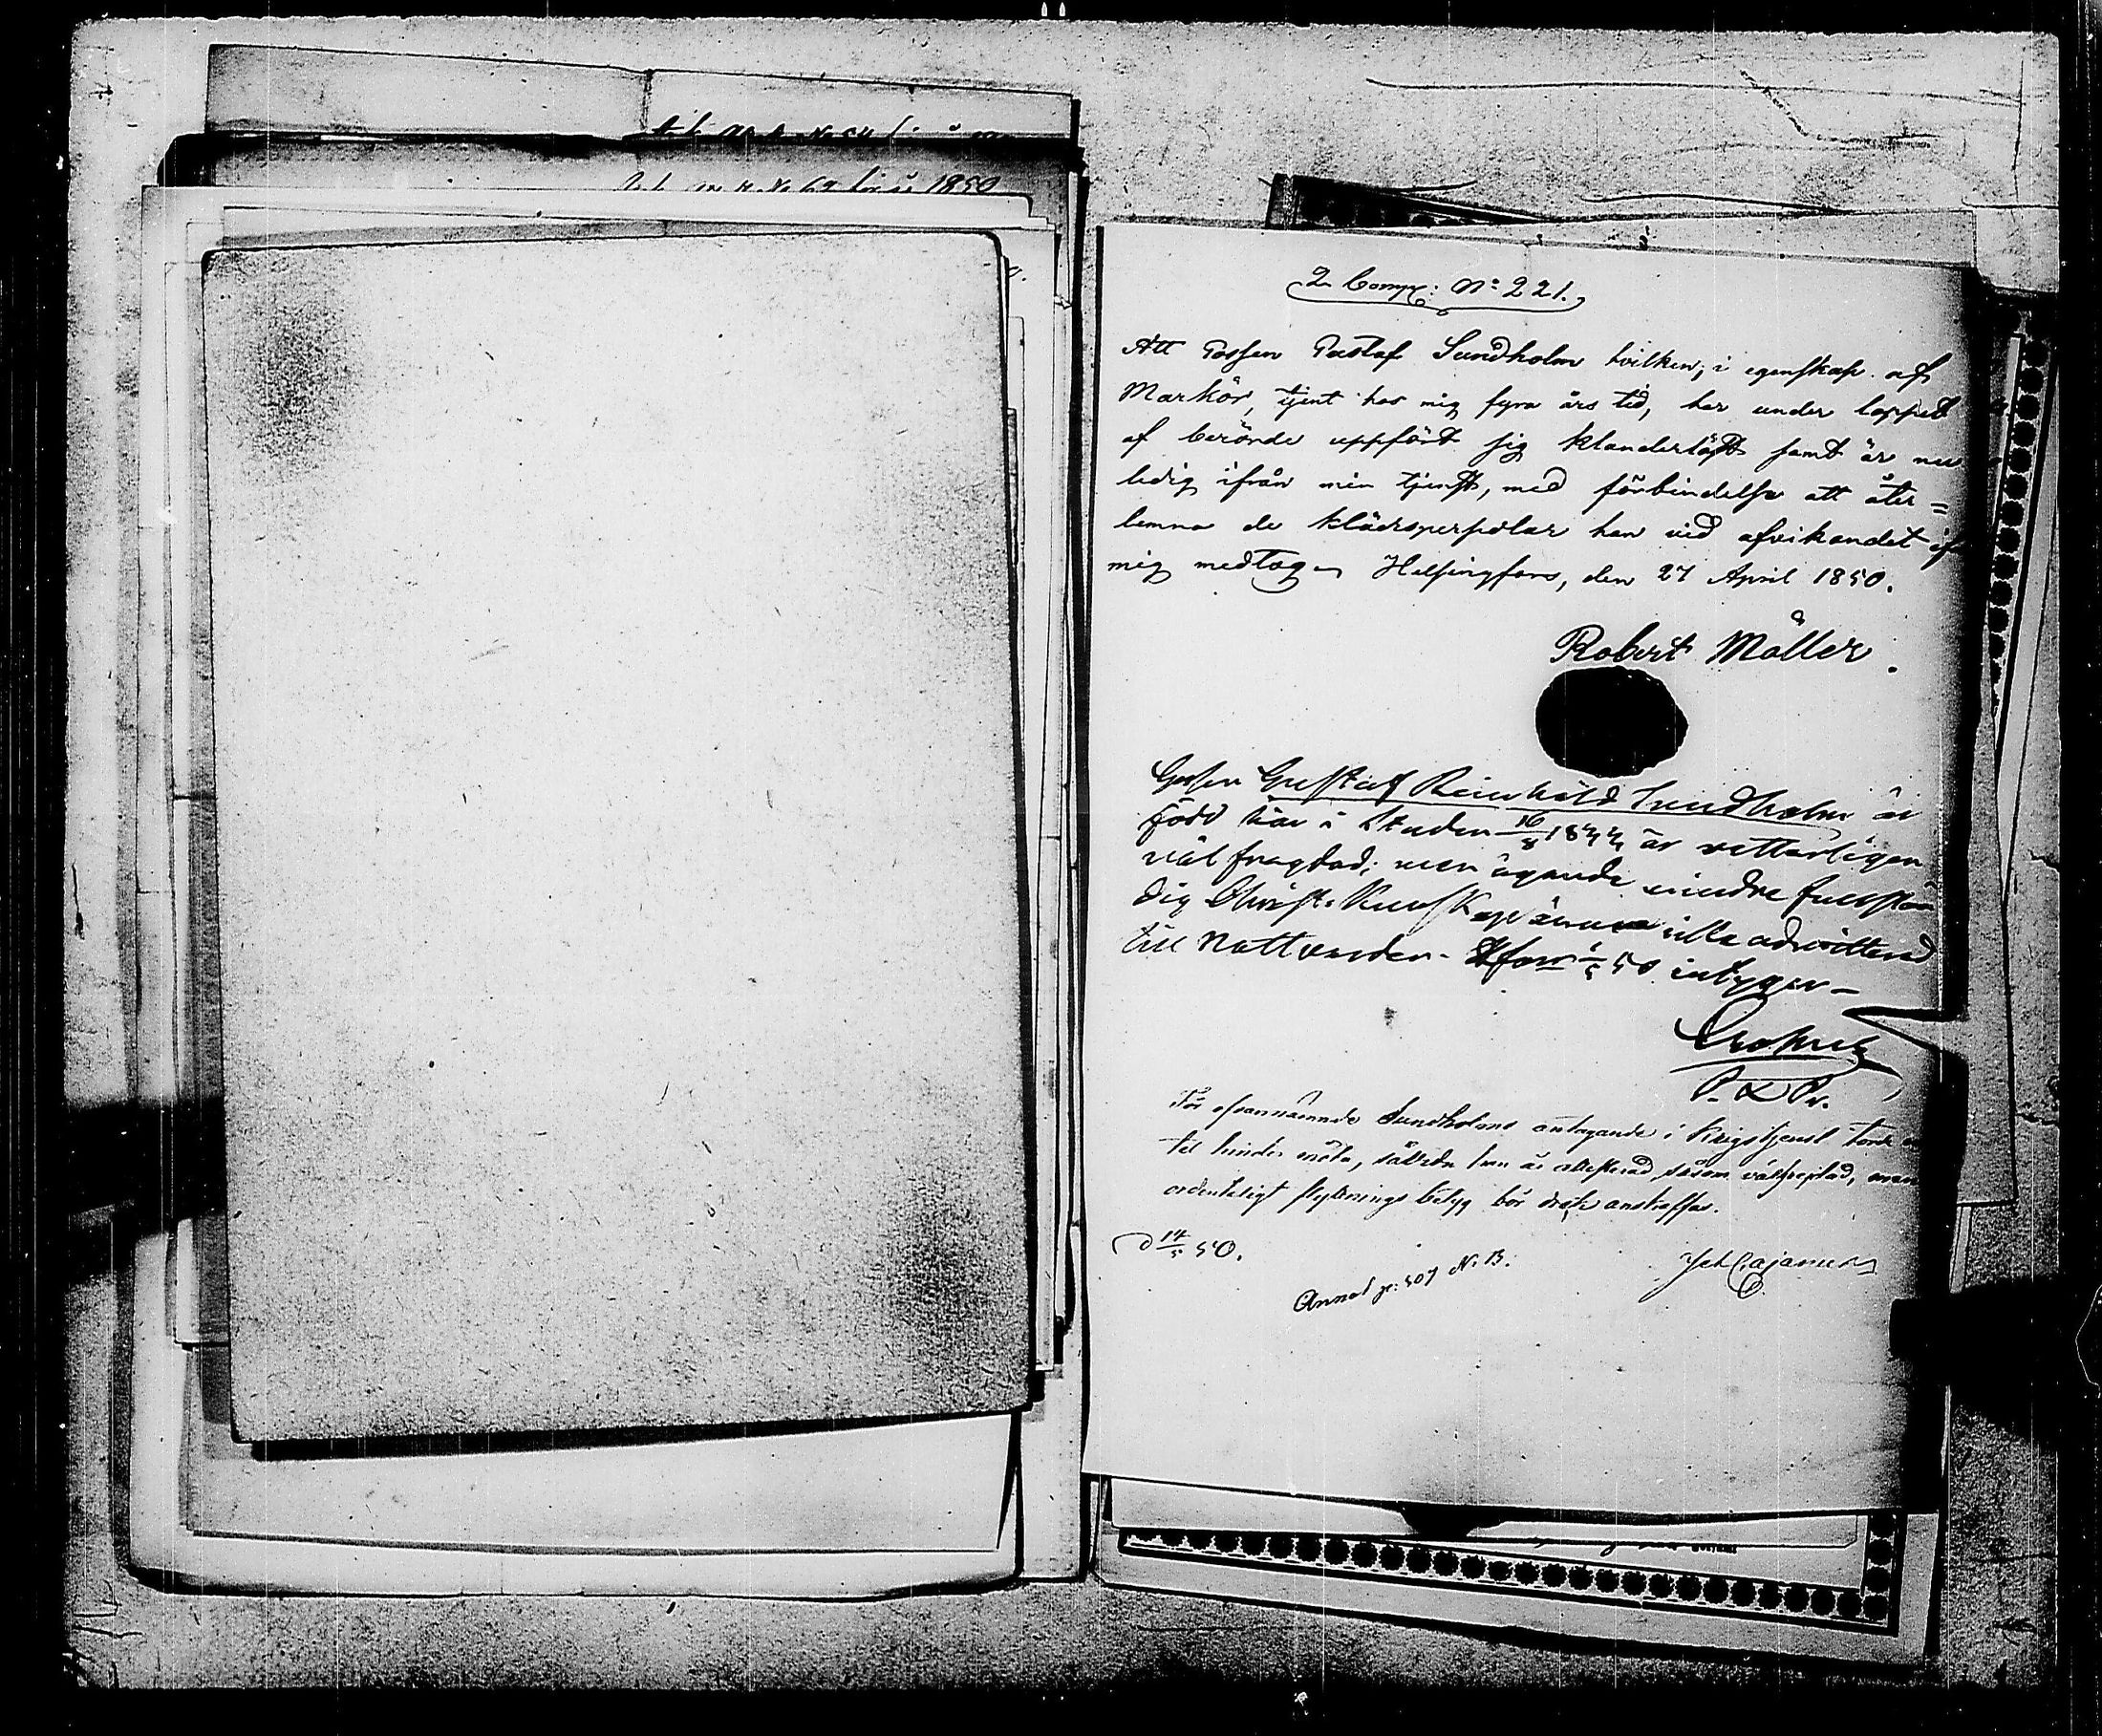 1850
2 Comp: No 221.
Att Gossen Gustaf Sundholm hvilken, i egenskap af
Markör, tjent hos mig fyra års tid, har under loppet
af berörde uppfört sig klanderlöst samt är nu
ledig ifrån min tjenst, med förbindelse att åter=
lemna de klädespersedlar han vid afvikandet af
mig medtog. Helsingfors, den 27 April 1850.
Robert Möller.
Gossen Gustaf Reinhold Sundholm är
född här i Staden 16/8 1833, är vetterligen
väl fragdad; men ägande mindre fullstän
dig Christ. Kunskap ännu illa admitterad
till Nattvarden. Hfors 1/5 50 intygar
Crohns
P. L. Pr.
För ofvannämnde Sundholms antagande i Krigstjenst torde
till hinder möta, såvida han är attesterad såsom välfrejdad, men
ordentligt flyttnings betyg bör dock anskaffas.
d 14/5 50.
Joh Cajanus
Annot p: 507 N. B.